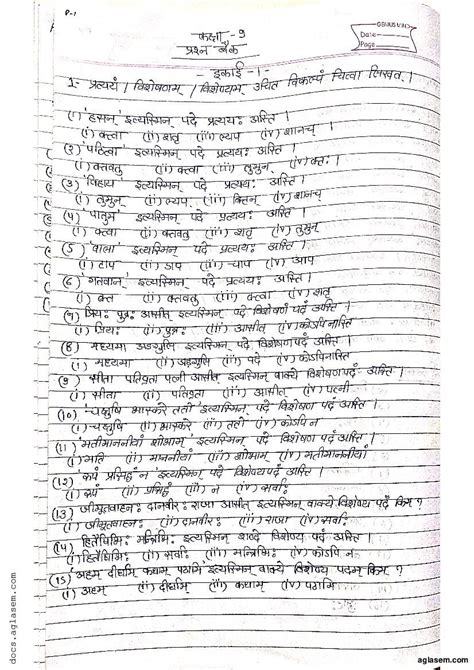 P-1
कक्षा - 9
प्रश्न बैंक
GENIUS
Date
Page
इकाई - 1
1- प्रत्ययं / विशेषणम् / विशेष्यम् उचित विकल्पं चित्वा लिखत ।
(1) 'हसन्' इत्यस्मिन् पदे प्रत्ययः अस्ति ।
(i) क्त्वा (ii) शतृ (iii) ल्यप् (iv) शानच्
(2) 'पठित्वा' इत्यस्मिन् पदे प्रत्ययः अस्ति ।
(i) क्तवतु (ii) क्त्वा (iii) तुमुन् (iv) क्तः ।
(3) 'विहाय' इत्यस्मिन् पदे प्रत्ययः अस्ति ।
(i) तुमुन् (ii) ल्यप् (iii) क्तिन् (iv) शानच्
(4) 'पातुम्' इत्यस्मिन् पदे प्रत्ययः अस्ति ।
(i) क्त्वा (ii) क्तवतु (iii) शतृ (iv) तुमुन्
(5) 'बाला' इत्यस्मिन् पदे प्रत्ययः अस्ति ।
(i) टाप् (ii) डाप् (iii) चाप् (iv) आप्
(6) 'गतवान्' इत्यस्मिन् पदे प्रत्ययः अस्ति ।
(i) क्त (ii) क्तवतु (iii) क्त्वा (iv) शतृ
(7) प्रियः पुत्रः आसीत् इत्यस्मिन् पदे विशेषण पदं अस्ति ।
(i) प्रियः (ii) पुत्रः (iii) आसीत् (iv) कोऽपि नास्ति
(8) मध्यमा अङ्गुलि इत्यस्मिन् पदे विशेषण पदं अस्ति ।
(i) मध्यमा (ii) अङ्गुलि (iii) पदे (iv) कोऽपि नास्ति
(9) सीता पतिव्रता पत्नी आसीत् इत्यस्मिन् वाक्ये विशेषण पदं अस्ति ।
(i) सीता (ii) पतिव्रता (iii) आसीत् (iv) पत्नी ।
(10) 'चक्षुषि भास्करे ततो' इत्यस्मिन् पदे विशेषण पदं अस्ति ।
(i) चक्षुषि (ii) भास्करे (iii) ततो (iv) कोऽपि न
(11) 'मतीमाननीयां शोभाम्' इत्यस्मिन् पदे विशेषण पदं अस्ति ।
(i) मति (ii) माननीयां (iii) शोभाम् (iv) मतीमाननीयां
(12) रूपं प्रसिद्धं न इत्यस्मिन् पदे विशेष्य पदं अस्ति ।
(i) रूपं (ii) प्रसिद्धं (iii) न (iv) सर्वाः
(13) जीमूतवाहनः दानवीरः राजा आसीत् इत्यस्मिन् वाक्ये विशेष्य पदं किम् ?
(i) जीमूतवाहनः (ii) दानवीरः (iii) राजा (iv) सर्वाः
(14) हितैषिभिः मन्त्रिभिः इत्यस्मिन् शब्दे विशेष्य पदं अस्ति ।
(i) हितैषिभिः (ii) सर्वाः (iii) मन्त्रिभिः (iv) कोऽपि न
(15) 'अहम् दीर्घाम् कथाम् पठामि' इत्यस्मिन् वाक्ये विशेष्य पदम् किम् ?
(i) अहम् (ii) दीर्घाम् (iii) कथाम् (iv) पठामि
docs.aglasem.com
aglasem.com